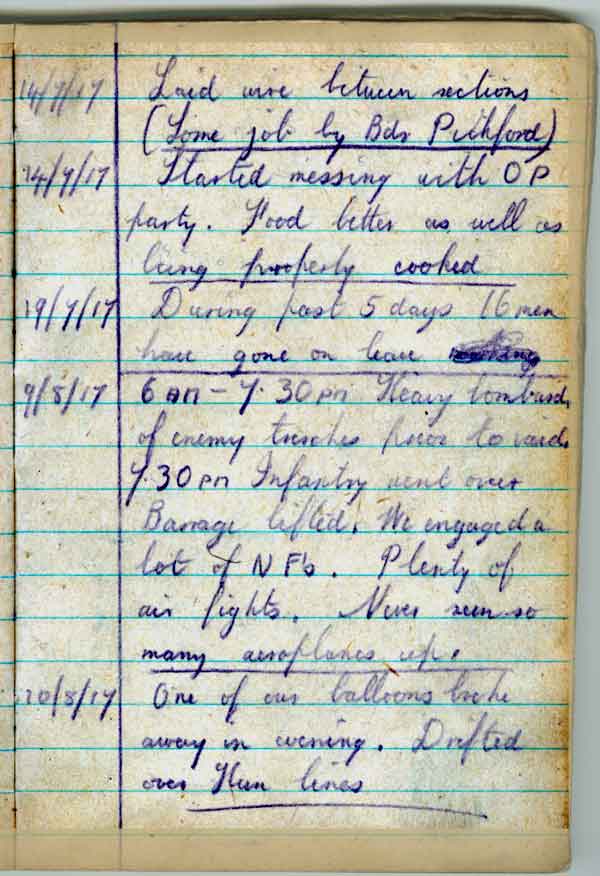 14/7/17 Laid wire between sections
(Some job by Bdr Pickford)
14/7/17 Started messing with OP
party. Food better as well as
being properly cooked
19/7/17 During past 5 days 16 men
have gone on leave
9/8/17 6 AM – 7.30 PM Heavy bombard.
of enemy trenches prior to raid.
7.30 PM Infantry went over
Barrage lifted. We engaged a
lot of NFs. Plenty of
air fights. Never seen so
many aeroplanes up.
10/8/17 One of our balloons broke
away in evening. Drifted
over Hun lines